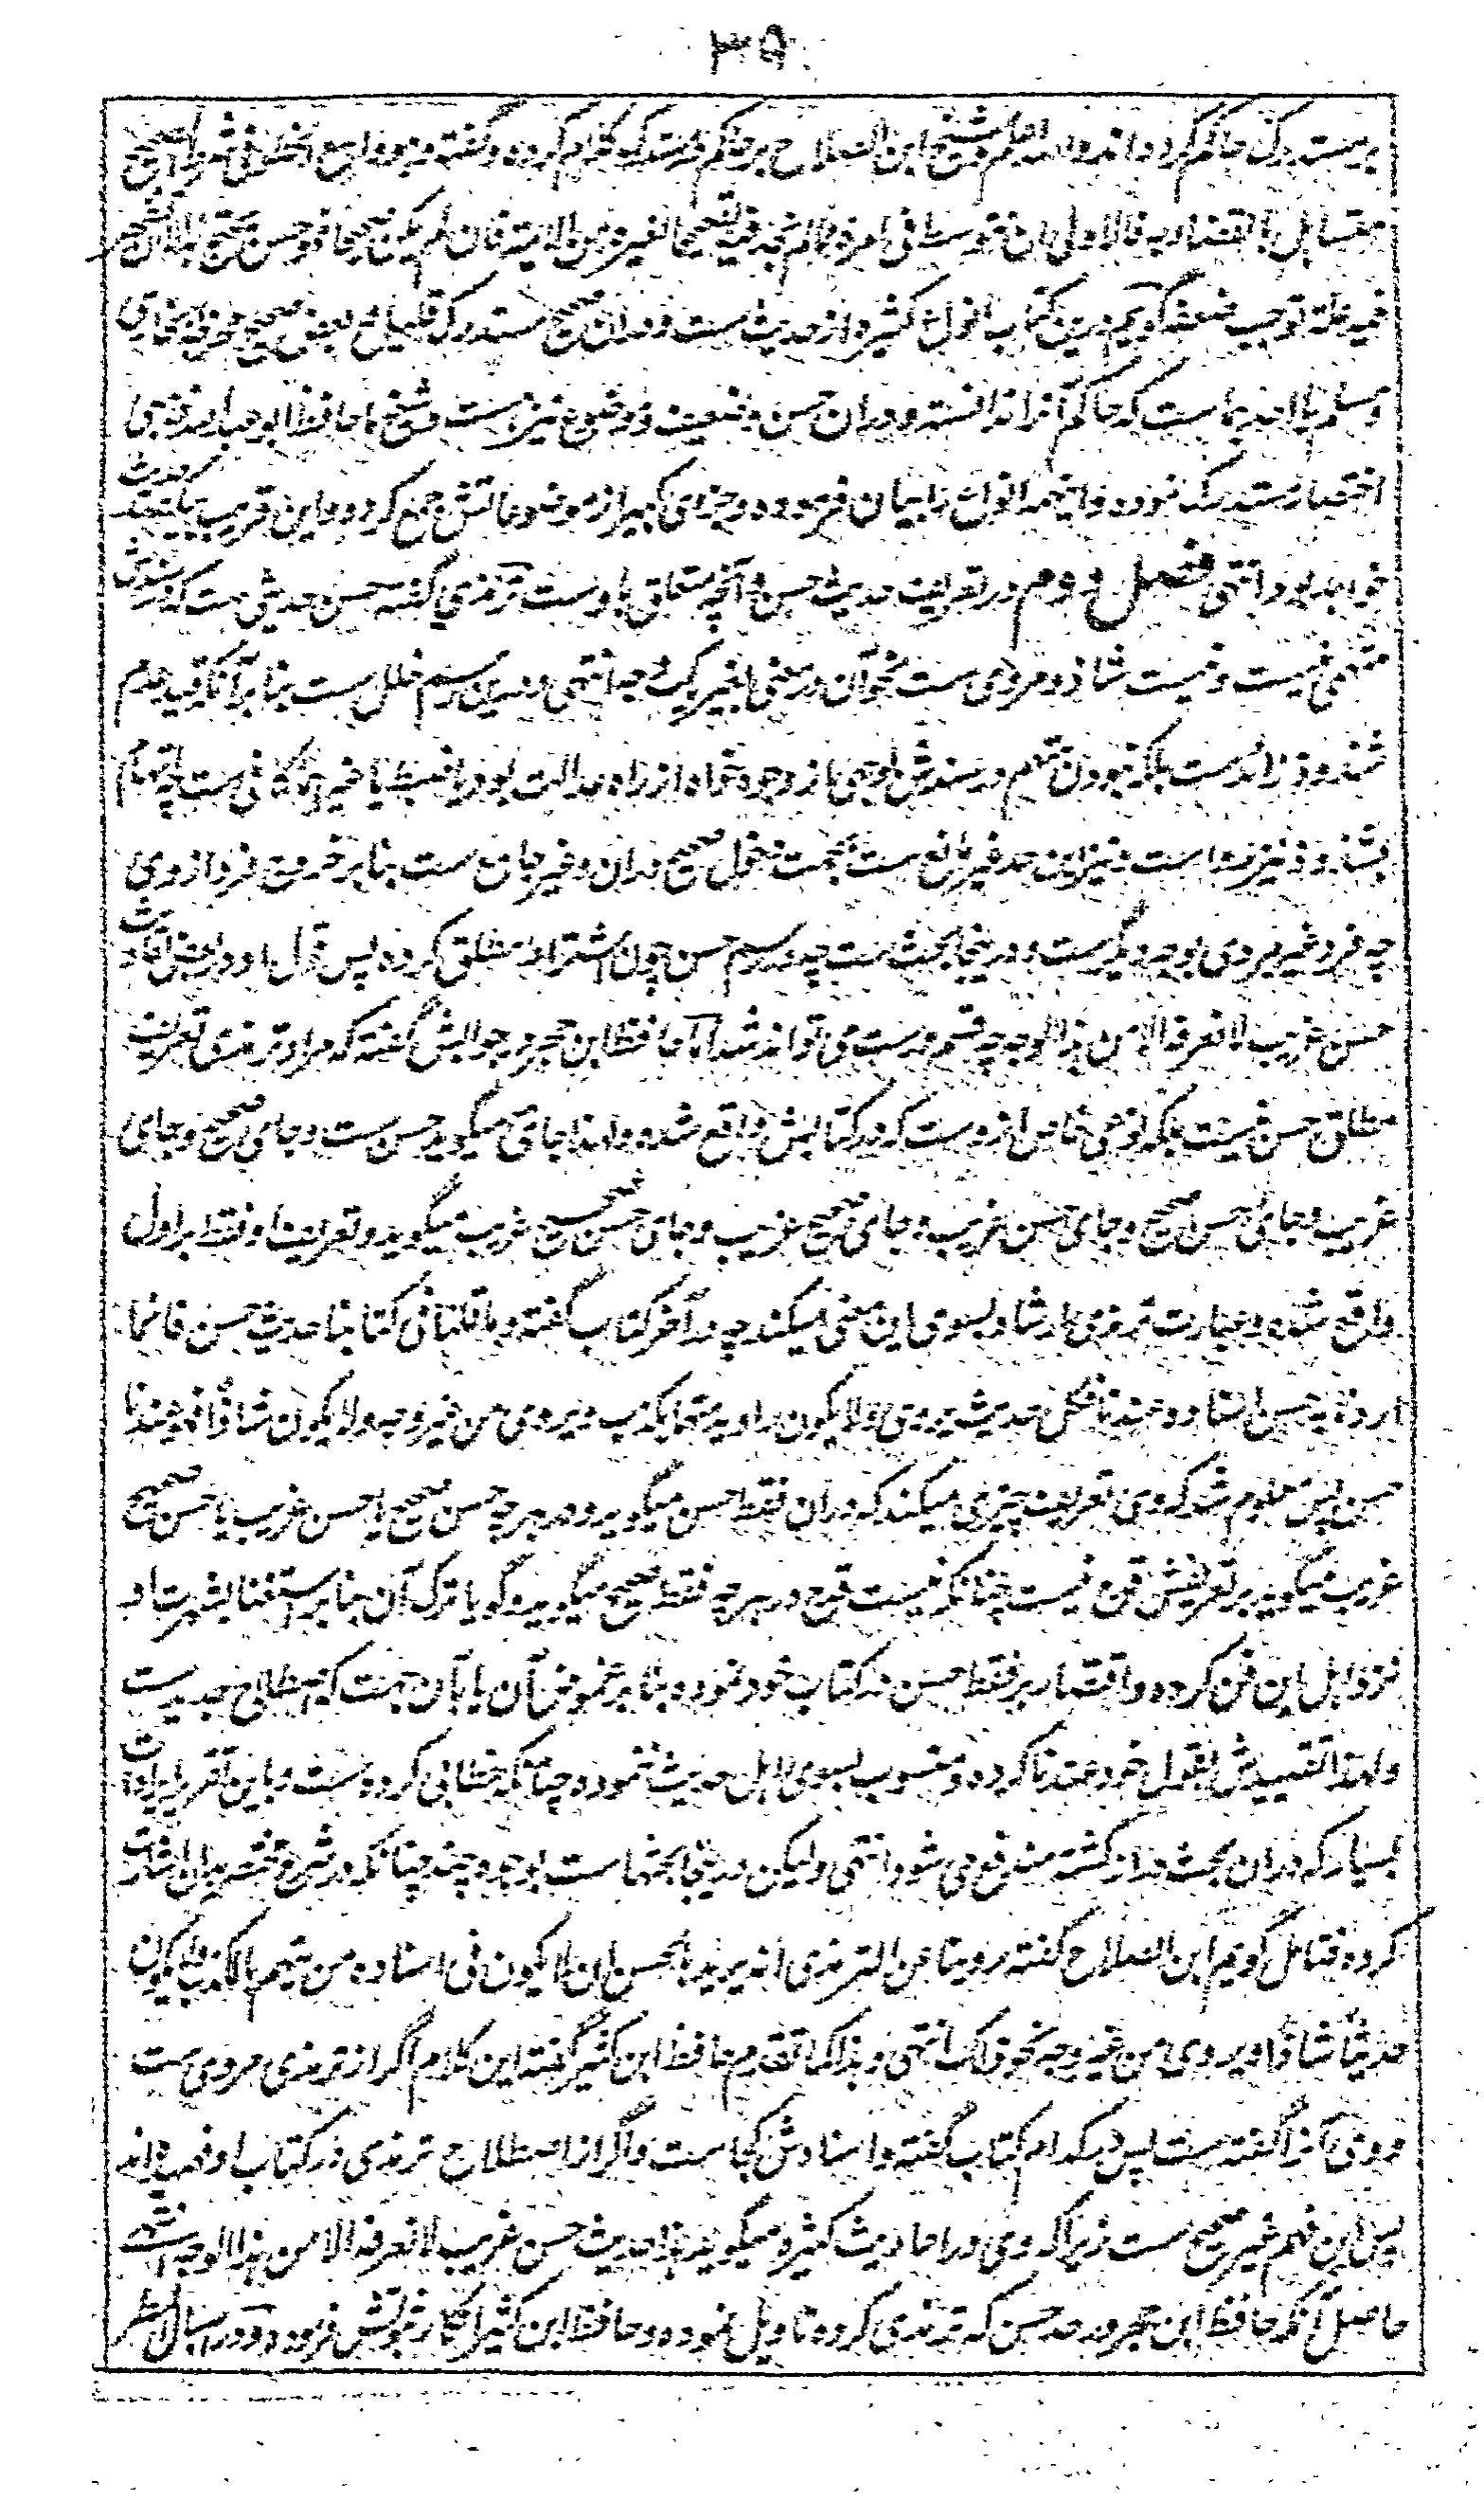 ۳۵
بر مستدرک حاکم کرده اند والله اعلم شیخ ابن الصلاح بر حاکم در مستدرک کلام کرده و گفته وهو واسع الخطو فی شرط الصحیح
متساهل بالقضاء به فالاولی ان نتوسط فی امره فما لم نجد فیه تصحیحا لغیره من الایمة فان لم یکن صحیحا فهو حسن یحتج به الا ان تظهر
فیه علة توجب ضعفه گویم درین کتاب انواع کثیره از حدیث ست و دران صحیح مستدرک قلیل و بعض صحیح مخرجه بخاری
و مسلم یا احدهما ست که حاکم آنرا ندانسته و دران حسن و ضعیف و موضوع نیز هست و شیخ ما حافظ ابو عبدالله ذهبی
اختصار مستدرک نموده و اینهمه انواع را بیان فرموده و جزوی کبیر از موضوعاتش جمع کرده و این قریب یکصد حدیث
خواهد بود انتهی فصل دوم در تعریف حدیث حسن و آنچه متعلق باوست ترمذی گفته حسن حدیثی ست که در سندش
متهمی نیست و نیست شاذ و مروی ست نحو آن در معنی بغیر یک وجه انتهی و درین رسم خلل ست بنا بر آنکه قید عدم
شذوذ زائدست بلکه نبودن متهم در سندش بوجهی از وجوه خواه از راه عدالت بود یا ضبط یا غیر آن کافی ست چه اتهام
بشذوذ نیز بوده است و نیز این حد غیر مانع ست بجهت دخول صحیح دران و غیر جامع ست بنا بر خروج فرد از وی
چه فرد غیر مروی بوجه دیگرست و درینجا بحث ست چه در رسم حسن چون اشتراط مطلق کرده پس قول او در بعض احادیث
حسن غریب لا نعرفه الا من هذا الوجه چه قسم درست می تواند شد اما حافظ ابن حجر در جوابش گفته که مراد ترمذی تعریف
مطلق حسن نیست بلکه نوعی خاص ازوست که در کتابش واقع شده ولهذا جائی میگوید حسن ست و جای صحیح و جای
غریب و جای حسن صحیح و جای حسن غریب و جای صحیح غریب و جای حسن صحیح غریب میگوید و تعریف او فقط بر اول
واقع شده و عبارت ترمذی ارشاد بسوی این معنی میکند چه در آخر کتاب گفته و ما قلنا فی کتابنا حدیث حسن فانما
اردنا به حسن اسناده عندنا فکل حدیث یروی ولا یکون راویه متهما بکذب ویروی من غیر وجه ولا یکون شاذا فهو عندنا
حسن پس معلوم شد که وی تعریف چیزی میکند که دران فقط حسن میگوید و در هر چه حسن صحیح یا حسن غریب یا حسن صحیح
غریب میگوید بر تعریفش قدح نیست چنانکه نیست قدح در هر چه فقط صحیح میگوید و گویا ترک آن بنا بر استغنا بشهرت او
نزد اهل این فن کرده و اقتصار بر فقط حسن در کتاب خود نموده بنا بر غموض آن یا بآن جهت که اصطلاح جدیدست
ولهذا تقییدش بقول خود عندنا کرده و منسوب بسوی اهل حدیث ننموده چنانکه خطابی کرده است و باین تقریر ایرادات
بسیار که دران بحث دراز گشته مندفع می شود انتهی ولیکن درینجا بحثها ست بوجوه چند چنانکه در شرح نخبه بدان اشارت
کرده فتامل گویم ابن الصلاح گفته روینا عن الترمذی انه یرید بالحسن ان لا یکون فی اسناده من یتهم بالکذب ولا یکون
حدیثا شاذا ویروی من غیر وجه نحو ذلک انتهی وهذا کما تقدم حافظ ابن کثیر گفته این کلام اگر از ترمذی مروی ست
و وی آنرا گفته ست پس بکدام کتاب گفته و اسنادش کجاست و اگر از اصطلاح ترمذی در کتاب او فهمیده اند
پس این فهم غیر صحیح ست زیراکه وی در احادیث کثیره میگوید هذا حدیث حسن غریب لا نعرفه الا من هذا الوجه انتهی
حاصل آنکه حافظ ابن حجر در حد حسن که ترمذی کرده تاویل نموده و حافظ ابن کثیر انکار ثبوتش فرموده و در